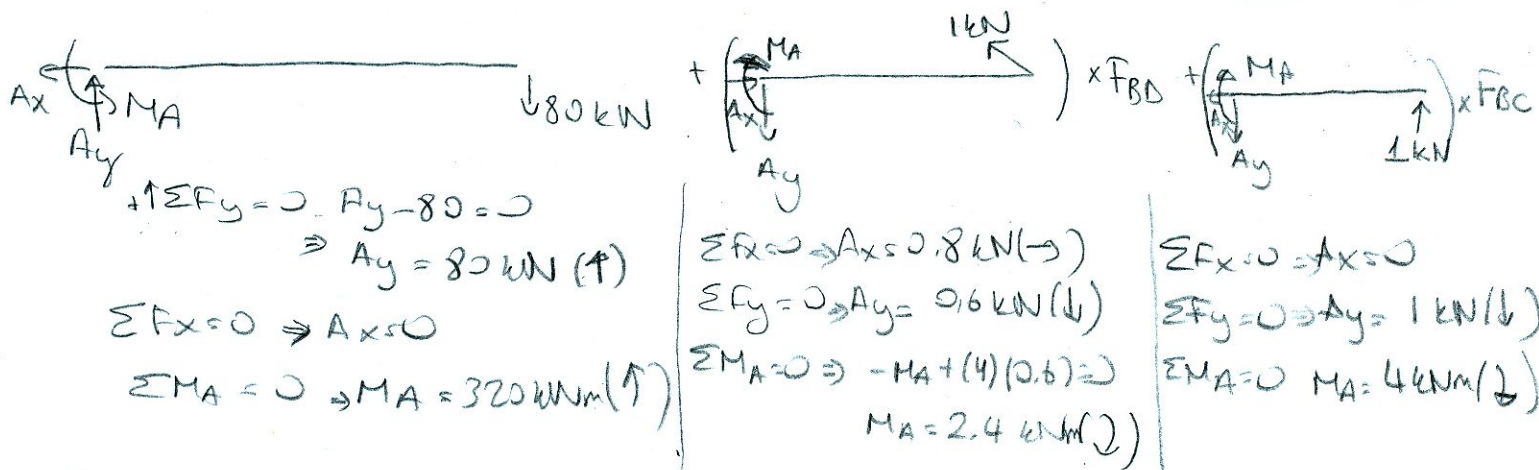 Ax MA Ay ↓80 kN + ( MA Ax Ay 1kN ) × FBD + ( MA Ax Ay 1kN ) × FBC
+↑ΣFy = 0 Ay - 80 = 0
⇒ Ay = 80 kN (↑)
ΣFx = 0 ⇒ Ax = 0
ΣMA = 0 ⇒ MA = 320 kNm (↑)
ΣFx = 0 ⇒ Ax = 0.8 kN (→)
ΣFy = 0 ⇒ Ay = 0.6 kN (↓)
ΣMA = 0 ⇒ -MA + (4)(0.6) = 0
MA = 2.4 kNm (⤵)
ΣFx = 0 ⇒ Ax = 0
ΣFy = 0 ⇒ Ay = 1 kN (↓)
ΣMA = 0 MA = 4 kNm (⤵)